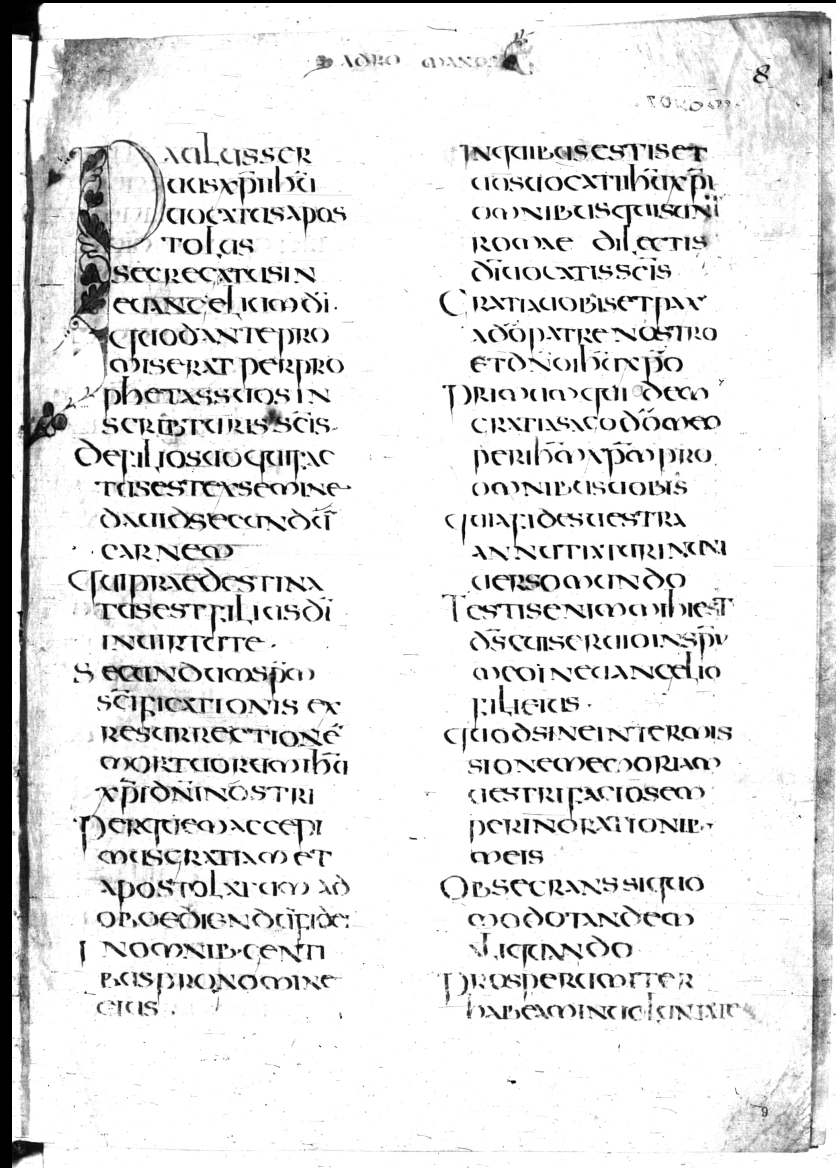 AD RO MANOS
8
PAULUS SER
UUS XPI IHU
UOCATUS APOS
TOLUS
SEGREGATUS IN
EUANGELIUM DI.
QUOD ANTE PRO
MISERAT PER PRO
PHETAS SUOS IN
SCRIBTURIS SCIS.
DE FILIO SUO QUI FAC
TUS EST EX SEMINE
DAUID SECUNDU
CARNEM
QUI PRAEDESTINA
TUS EST FILIUS DI
IN UIRTUTE.
SECUNDUM SPM
SCIFICATIONIS EX
RESURRECTIONE
MORTUORUM IHU
XPI DNI NOSTRI
PER QUEM ACCEPI
MUS GRATIAM ET
APOSTOLATUM AD
OBOEDIENDU FIDEI
IN OMNIB· GENTI
BUS PRO NOMINE
EIUS.
IN QUIBUS ESTIS ET
UOS UOCATI IHU XPI
OMNIBUS QUI SUNT
ROMAE DILECTIS
DI UOCATIS SCIS
GRATIA UOBIS ET PAX
A DO PATRE NOSTRO
ET DNO IHU XPO
PRIMUM QUIDEM
GRATIAS AGO DO MEO
PER IHM XPM PRO
OMNIBUS UOBIS
QUIA FIDES UESTRA
ANNUTIATUR IN UNI
UERSO MUNDO
TESTIS ENIM MIHI EST
DS CUI SERUIO IN SPU
MEO IN EUANGELIO
FILI EIUS.
QUOD SINE INTERMIS
SIONE MEMORIAM
UESTRI FACIO SEM
PER IN ORATIONIB·
MEIS
OBSECRANS SI QUO
MODO TANDEM
ALIQUANDO
PROSPERUM ITER
HABEAM IN UOLUNTATE
9